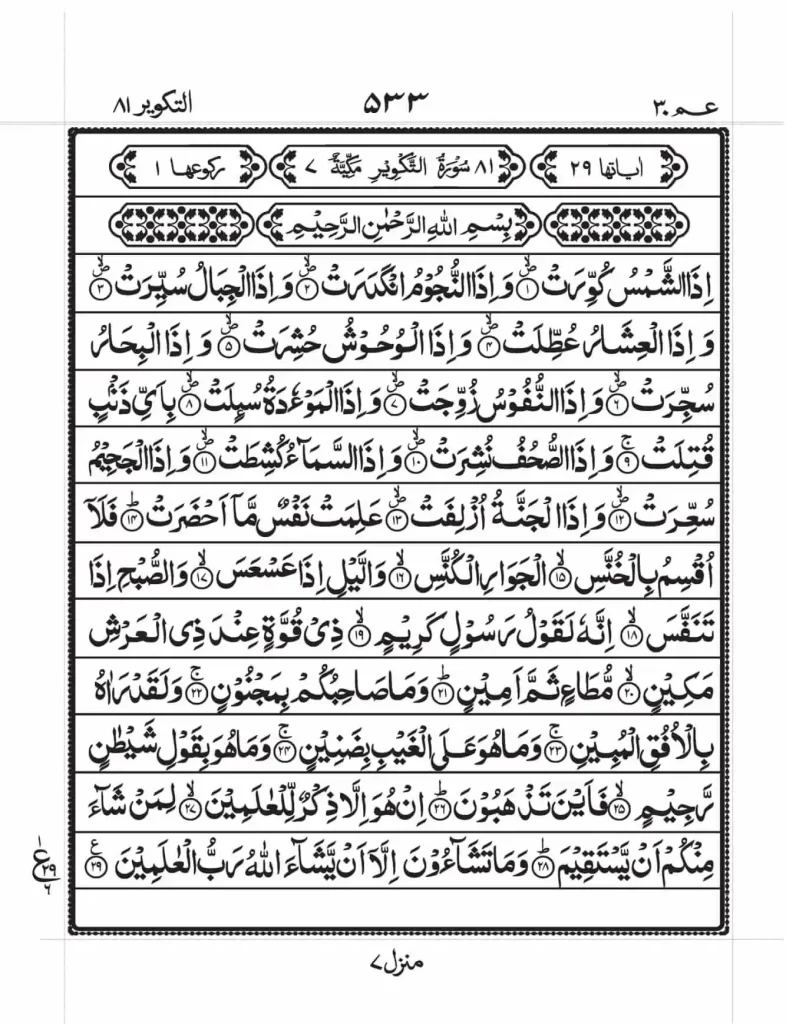 عـم ٣٠ ۵۳۳ التكوير ٨١
اٰیاتها ٢٩ ٨١ سُوْرَةُ التَّكْوِيْرِ مَكِّيَّةٌ ٧ ركوعها ١
بِسْمِ اللّٰهِ الرَّحْمٰنِ الرَّحِيْمِ
اِذَا الشَّمْسُ كُوِّرَتْ ۙ‏﴿۱﴾ وَاِذَا النُّجُوْمُ انْكَدَرَتْ ۙ‏﴿۲﴾ وَاِذَا الْجِبَالُ سُيِّرَتْ ۙ‏﴿۳﴾
وَاِذَا الْعِشَارُ عُطِّلَتْ ۙ‏﴿۴﴾ وَاِذَا الْوُحُوْشُ حُشِرَتْ ۙ‏﴿۵﴾ وَاِذَا الْبِحَارُ
سُجِّرَتْ ۙ‏﴿۶﴾ وَاِذَا النُّفُوْسُ زُوِّجَتْ ۙ‏﴿۷﴾ وَاِذَا الْمَوْءٗدَةُ سُىِٕلَتْ ۙ‏﴿۸﴾ بِاَىِّ ذَنْۢبٍ
قُتِلَتْ ۚ‏﴿۹﴾ وَاِذَا الصُّحُفُ نُشِرَتْ ۙ‏﴿۱۰﴾ وَاِذَا السَّمَآءُ كُشِطَتْ ۙ‏﴿۱۱﴾ وَاِذَا الْجَحِيْمُ
سُعِّرَتْ ۙ‏﴿۱۲﴾ وَاِذَا الْجَنَّةُ اُزْلِفَتْ ۙ‏﴿۱۳﴾ عَلِمَتْ نَفْسٌ مَّاۤ اَحْضَرَتْ ؕ‏﴿۱۴﴾ فَلَاۤ
اُقْسِمُ بِالْخُنَّسِ ۙ‏﴿۱۵﴾ الْجَوَارِ الْكُنَّسِ ۙ‏﴿۱۶﴾ وَالَّيْلِ اِذَا عَسْعَسَ ۙ‏﴿۱۷﴾ وَالصُّبْحِ اِذَا
تَنَفَّسَ ۙ‏﴿۱۸﴾ اِنَّهٗ لَقَوْلُ رَسُوْلٍ كَرِيْمٍ ۙ‏﴿۱۹﴾ ذِىْ قُوَّةٍ عِنْدَ ذِى الْعَرْشِ
مَكِيْنٍ ۙ‏﴿۲۰﴾ مُّطَاعٍ ثَمَّ اَمِيْنٍ ؕ‏﴿۲۱﴾ وَمَا صَاحِبُكُمْ بِمَجْنُوْنٍ ۚ‏﴿۲۲﴾ وَلَقَدْ رَاٰهُ
بِالْاُفُقِ الْمُبِيْنِ ۚ‏﴿۲۳﴾ وَمَا هُوَ عَلَى الْغَيْبِ بِضَنِيْنٍ ۚ‏﴿۲۴﴾ وَمَا هُوَ بِقَوْلِ شَيْطٰنٍ
رَّجِيْمٍ ۙ‏﴿۲۵﴾ فَاَيْنَ تَذْهَبُوْنَ ؕ‏﴿۲۶﴾ اِنْ هُوَ اِلَّا ذِكْرٌ لِّلْعٰلَمِيْنَ ۙ‏﴿۲۷﴾ لِمَنْ شَآءَ
مِنْكُمْ اَنْ يَّسْتَقِيْمَ ؕ‏﴿۲۸﴾ وَمَا تَشَآءُوْنَ اِلَّاۤ اَنْ يَّشَآءَ اللّٰهُ رَبُّ الْعٰلَمِيْنَ ﴿۲۹﴾
ع ١ ٢٩ ٦
منزل ٧